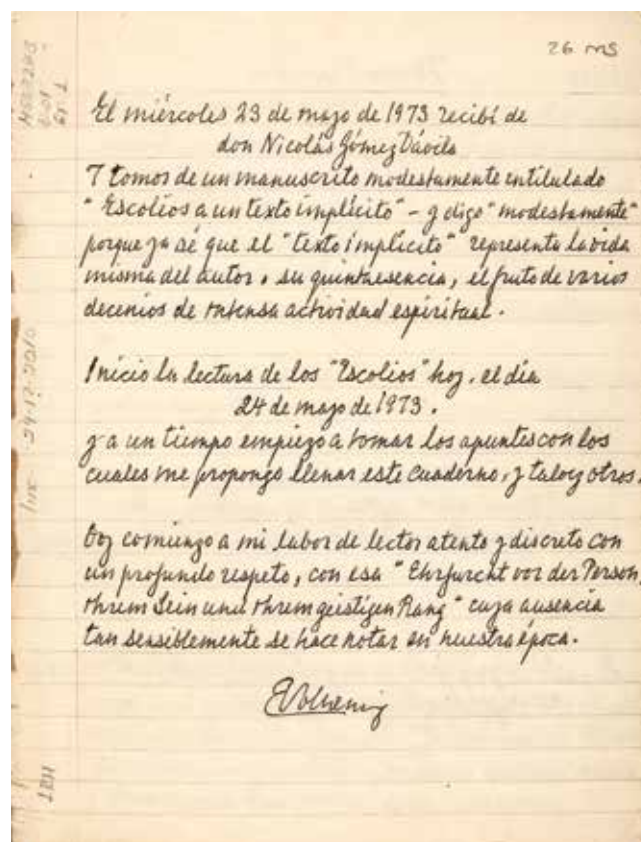 26 MS
El miércoles 23 de mayo de 1973 recibí de
don Nicolás Gómez Dávila
7 tomos de un manuscrito modestamente entitulado
"Escolios a un texto implícito" - y digo "modestamente"
porque ya sé que el "texto implícito" representa la vida
misma del autor, su quintaesencia, el fruto de varios
decenios de intensa actividad espiritual.
Inicio la lectura de los "Escolios" hoy, el día
24 de mayo de 1973.
y a un tiempo empiezo a tomar los apuntes con los
cuales me propongo llenar este cuaderno, y tal vez otros.
Doy comienzo a mi labor de lector atento y discreto con
un profundo respeto, con esa "Ehrfurcht vor der Person,
ihrem Sein und ihrem geistigen Rang" cuya ausencia
tan sensiblemente se hace notar en nuestra época.